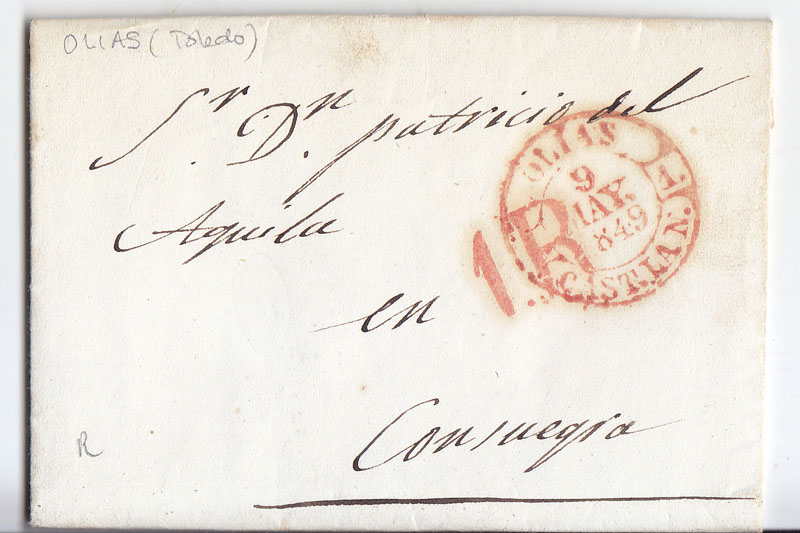 OLIAS (Toledo)
Sr. Dn. patricio del
Aquila
en
Consuegra
OLIAS
1
9
MAY.
849
CAST. LA N.
1R
R